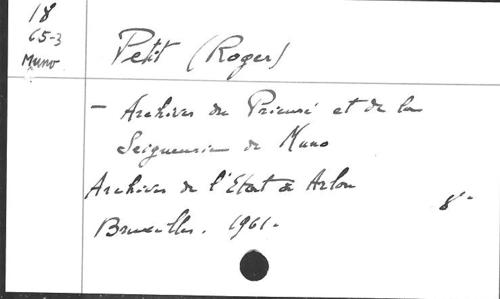 18
65-3
Muno
Petit (Roger)
- Archives du Prieuré et de la
Seigneurie de Muno
Archives de l'Etat à Arlon
8°
Bruxelles. 1961.